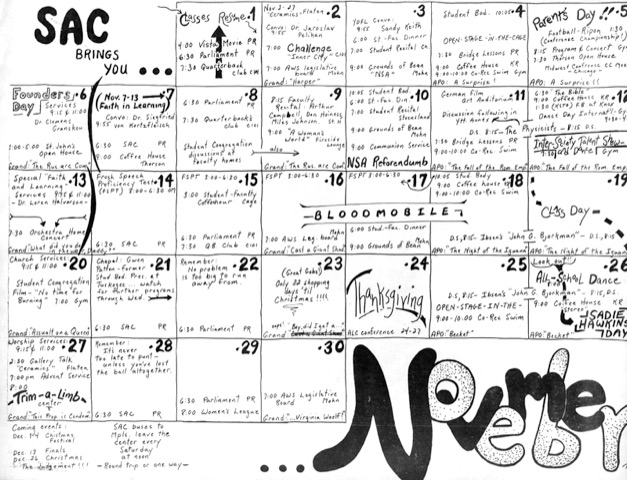 SAC
BRINGS
YOU ...
Classes Resume • 1
4:00 Vista Movie PR
6:30 Parliament PR
7:30 Quarterback
club C101
Nov. 2-23 • 2
"Ceramics" - Flaten
Convo: Dr. Jaroslav
Pelikan
7:00 Challenge
"Inner City" C101
7:00 AWS Legislative
board Mohn
Grand: "Harper"
• 3
YDFL Convo:
9:55 Sandy Keith
7:00 Student Recital
9:00 Grounds of Bean
"NSA" Mohn
Student Bod. 10:05 • 4
OPEN-STAGE-IN-THE-CAGE
3:30 Bridge Lessons PR
9:00 Coffee House KR
9:00-10:00 Co-Rec Swim Gym
APO: A Surprise!
Parents Day!! • 5
Football-Ripon 1:30
Conference Championship
8:15 Program & Concert Gym
7:30 Thorson Open House
Midwest Conference CC
- Chicago -
APO: A Surprise!!
Founders • 6
Day Services
9:15 & 11:00
Dr. Clemens
Granskou
1:00-5:00 St. Johns
Open House
Grand: "The Rus are Com.
Nov. 7-13 • 7
Faith in Learning
Convo: Dr. Siegfried
9:55 von Kortzfleisch
6:30 SAC PR
9:00 Coffee House
Thorson
• 8
6:30 Parliament PR
7:30 Quarterback
club C101
Student Congregation
discussions at
faculty homes
also
• 9
8:15 Faculty
Recital: Arthur
Campbell, Don Hoiness,
Miles Johnson, St. H.
9:00 "A Woman's
World" Fireside
Lounge
Grand: "The Rus are Com.
• 10
6:00 Student Bod
6:00 St.-Fac. Din
7:00 Student Recital
Steensland
9:00 Grounds of Bean
Mohn
9:00 Communion Service
NSA Referendum
German Film • 11
Art Auditorium
Discussion following in
D.S. 8:15 - The Physicists - 8:15 D.S.
3:30 Bridge Lessons PR
9:00-10:00 Co-Rec Swim
APO: "The Fall of the Rom. Emp.
6:30 The Bible • 12
9:00 Coffee House KR
Dance Day Internat'l-Gym
Inter-Society Talent Show
Gym
APO: "The Fall of the Rom. Emp.
Special "Faith • 13
and Learning"
Services 9:15 & 11:00
- Dr. Loren Halvorson -
7:30 Orchestra Home
Concert
Grand: "What did you do
in the war, Daddy?"
Frosh Speech • 14
Proficiency Tests
(FSPT) 3:00-6:30 PM
6:30 SAC PR
FSPT 3:00-6:30 • 15
3:00 Student-Faculty
Coffeehour Cage
6:30 Parliament PR
7:30 QB Club C101
• 16
BLOODMOBILE
7:00 AWS Leg. Board
Mohn
Grand: "Cast a Giant Shad
FSPT 3:00-6:30 • 17
6:00 Stud.-Fac. Dinner
Mohn
9:00 Grounds of Bean
10:05 Stud. Body • 18
9:00 Coffee house KR
9:00-10:00 Co-Rec Swim
D.S., 8:15 - Ibsen's "John G. Bjorkman" - D.S., 8:15
APO: "The Night of the Iguana
• 19
CLASS Day
APO: "The Night of the Iguana
Church Services • 20
9:15 & 11:00
Student Congregation
Film - "A Time for
Burning" 7:00 Gym
Grand: "Assault on a Queen
Chapel: Gwen • 21
Patton - former
Stud Bod Pres. at
Tuskegee - watch
for further programs
through Wed.
6:30 SAC PR
Remember: • 22
No problem
is too big to run
away from.
6:30 Parliament PR
• 23
(Great Gobs!
Only 22 shopping
days 'til
Christmas!!!!
• 24
Thanksgiving
ALC conference 24-27
• 25
D.S., 8:15 - Ibsen's "John G. Bjorkman" - 8:15, D.S.
OPEN-STAGE-IN-THE-
9:00-10:00 Co-Rec Swim
APO: "Becket"
Look out!! • 26
ALL-SCHOOL DANCE
center stereo
9:00 Coffee House KR
SADIE
HAWKINS
DAY
APO: "Becket"
Worship Services: • 27
9:15 & 11:00 PR
2:30 Gallery Talk
"Ceramics" Flaten
7:00 pm Advent Service
8:00
Trim-a-Limb
center
Grand: "This Prop. is Condem.
Remember: • 28
It's never
too late to punt -
unless you've lost
the ball altogether.
6:30 SAC PR
• 29
6:30 Parliament PR
8:00 Women's League
• 30
7:00 AWS Legislative
Board Mohn
Grand: "...Virginia Woolf?"
... November
Coming events:
Dec. 1-4 Christmas
Festival
Dec. 17 Finals
Dec. 25 Christmas
- The Judgement!!!
SAC buses to
Mpls. leave the
center every
Saturday
at noon
- Round trip or one way -